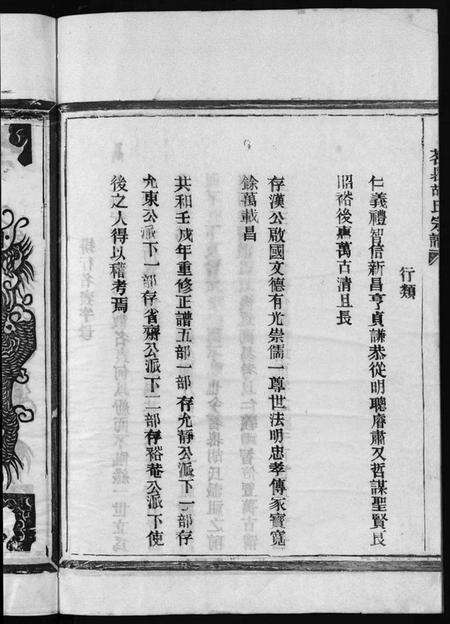 行類
仁義禮智信新昌亨貞謙恭從明聰睿肅乂哲謀聖賢良
昭裕後惠萬古清且長
存漢公啟國文德有光崇儒一尊世法明忠孝傳家寶寬
餘萬載昌
共和壬戌年重修正譜五部一部存允靜公派下一部存
允東公派下一部存省齋公派下二部存裕菴公派下使
後之人得以稽考焉
氏宗譜